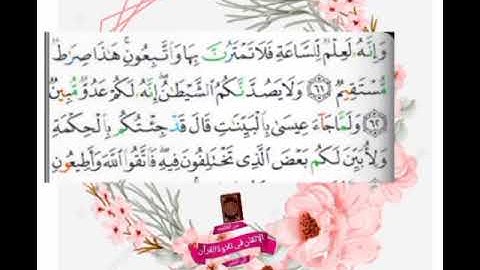 وَإِنَّهُۥ لَعِلْمٌ لِّلسَّاعَةِ فَلَا تَمْتَرُنَّ بِهَا وَٱتَّبِعُونِ ۚ هَٰذَا صِرَٰطٌ
مُّسْتَقِيمٌ ٦١ وَلَا يَصُدَّنَّكُمُ ٱلشَّيْطَٰنُ ۖ إِنَّهُۥ لَكُمْ عَدُوٌّ مُّبِينٌ
٦٢ وَلَمَّا جَآءَ عِيسَىٰ بِٱلْبَيِّنَٰتِ قَالَ قَدْ جِئْتُكُم بِٱلْحِكْمَةِ
وَلِأُبَيِّنَ لَكُم بَعْضَ ٱلَّذِى تَخْتَلِفُونَ فِيهِ ۖ فَٱتَّقُوا۟ ٱللَّهَ وَأَطِيعُونِ
الإتقان في تلاوة القرآن